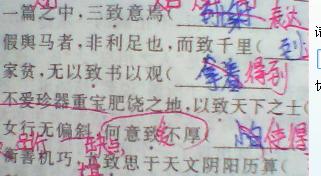 一篇之中,三致意焉( 表达
假舆马者,非利足也,而致千里( 到
家贫,无以致书以观( 得到
不爱珍器重宝肥饶之地,以致天下之士(
女行无偏斜,何意致不厚( 使得
衡善机巧,尤致思于天文阴阳历算(